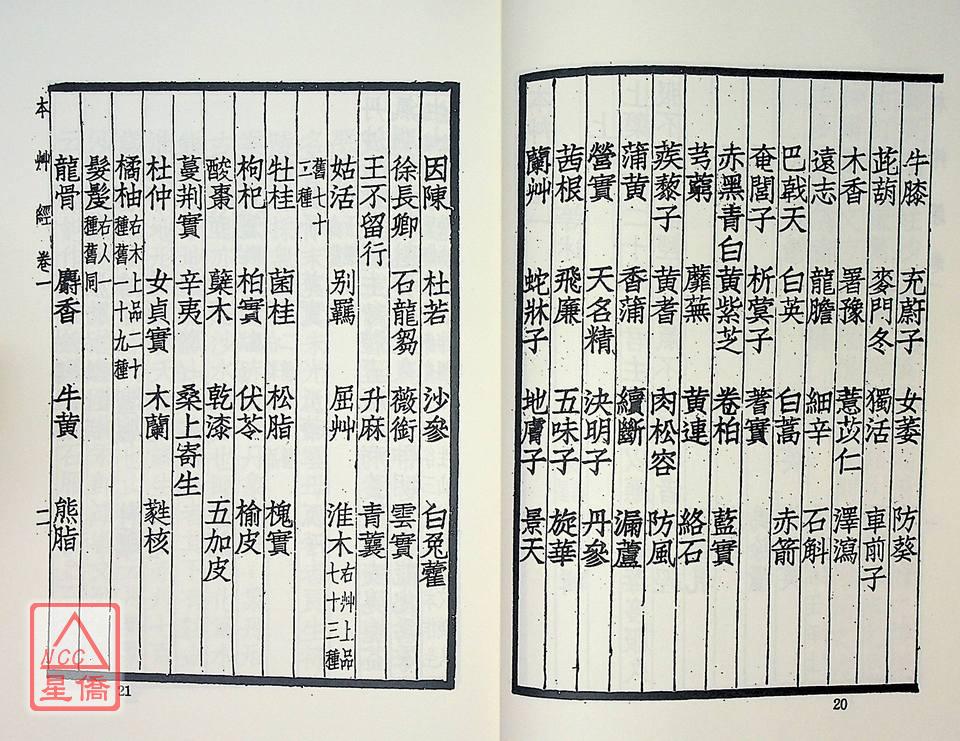 牛膝 充蔚子 女萎 防葵
茈胡 麥門冬 獨活 車前子
木香 署豫 薏苡仁 澤瀉
遠志 龍膽 細辛 石斛
巴戟天 白英 白蒿 赤箭
奄閭子 析蓂子 蓍實
赤黑青白黃紫芝 卷柏 藍實
芎藭 蘼蕪 黃連 絡石
蒺藜子 黃耆 肉松容 防風
蒲黃 香蒲 續斷 漏蘆
營實 天名精 決明子 丹參
茜根 飛廉 五味子 旋華
蘭艸 蛇牀子 地膚子 景天
20
因陳 杜若 沙參 白兔藿
徐長卿 石龍芻 薇銜 雲實
王不留行 升麻 青蘘
姑活 別羇 屈艸 淮木 右艸上品七十三種
舊七十二種
牡桂 菌桂 松脂 槐實
枸杞 柏實 伏苓 榆皮
酸棗 蘗木 乾漆 五加皮
蔓荆實 辛夷 桑上寄生
杜仲 女貞實 木蘭 蕤核
橘柚 右木上品二十種舊一十九種
髮髲 右人一種舊同
龍骨 麝香 牛黃 熊脂
本艸經卷一
二一
21
NCC
星僑